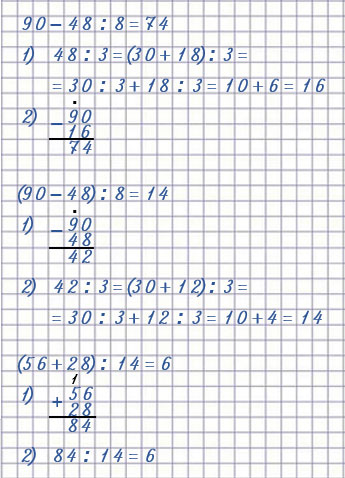 90 - 48 : 8 = 74
1) 48 : 3 = (30 + 18) : 3 =
= 30 : 3 + 18 : 3 = 10 + 6 = 16
2) - 90
16
74
(90 - 48) : 8 = 14
1) - 90
48
42
2) 42 : 3 = (30 + 12) : 3 =
= 30 : 3 + 12 : 3 = 10 + 4 = 14
(56 + 28) : 14 = 6
1
1) + 56
28
84
2) 84 : 14 = 6